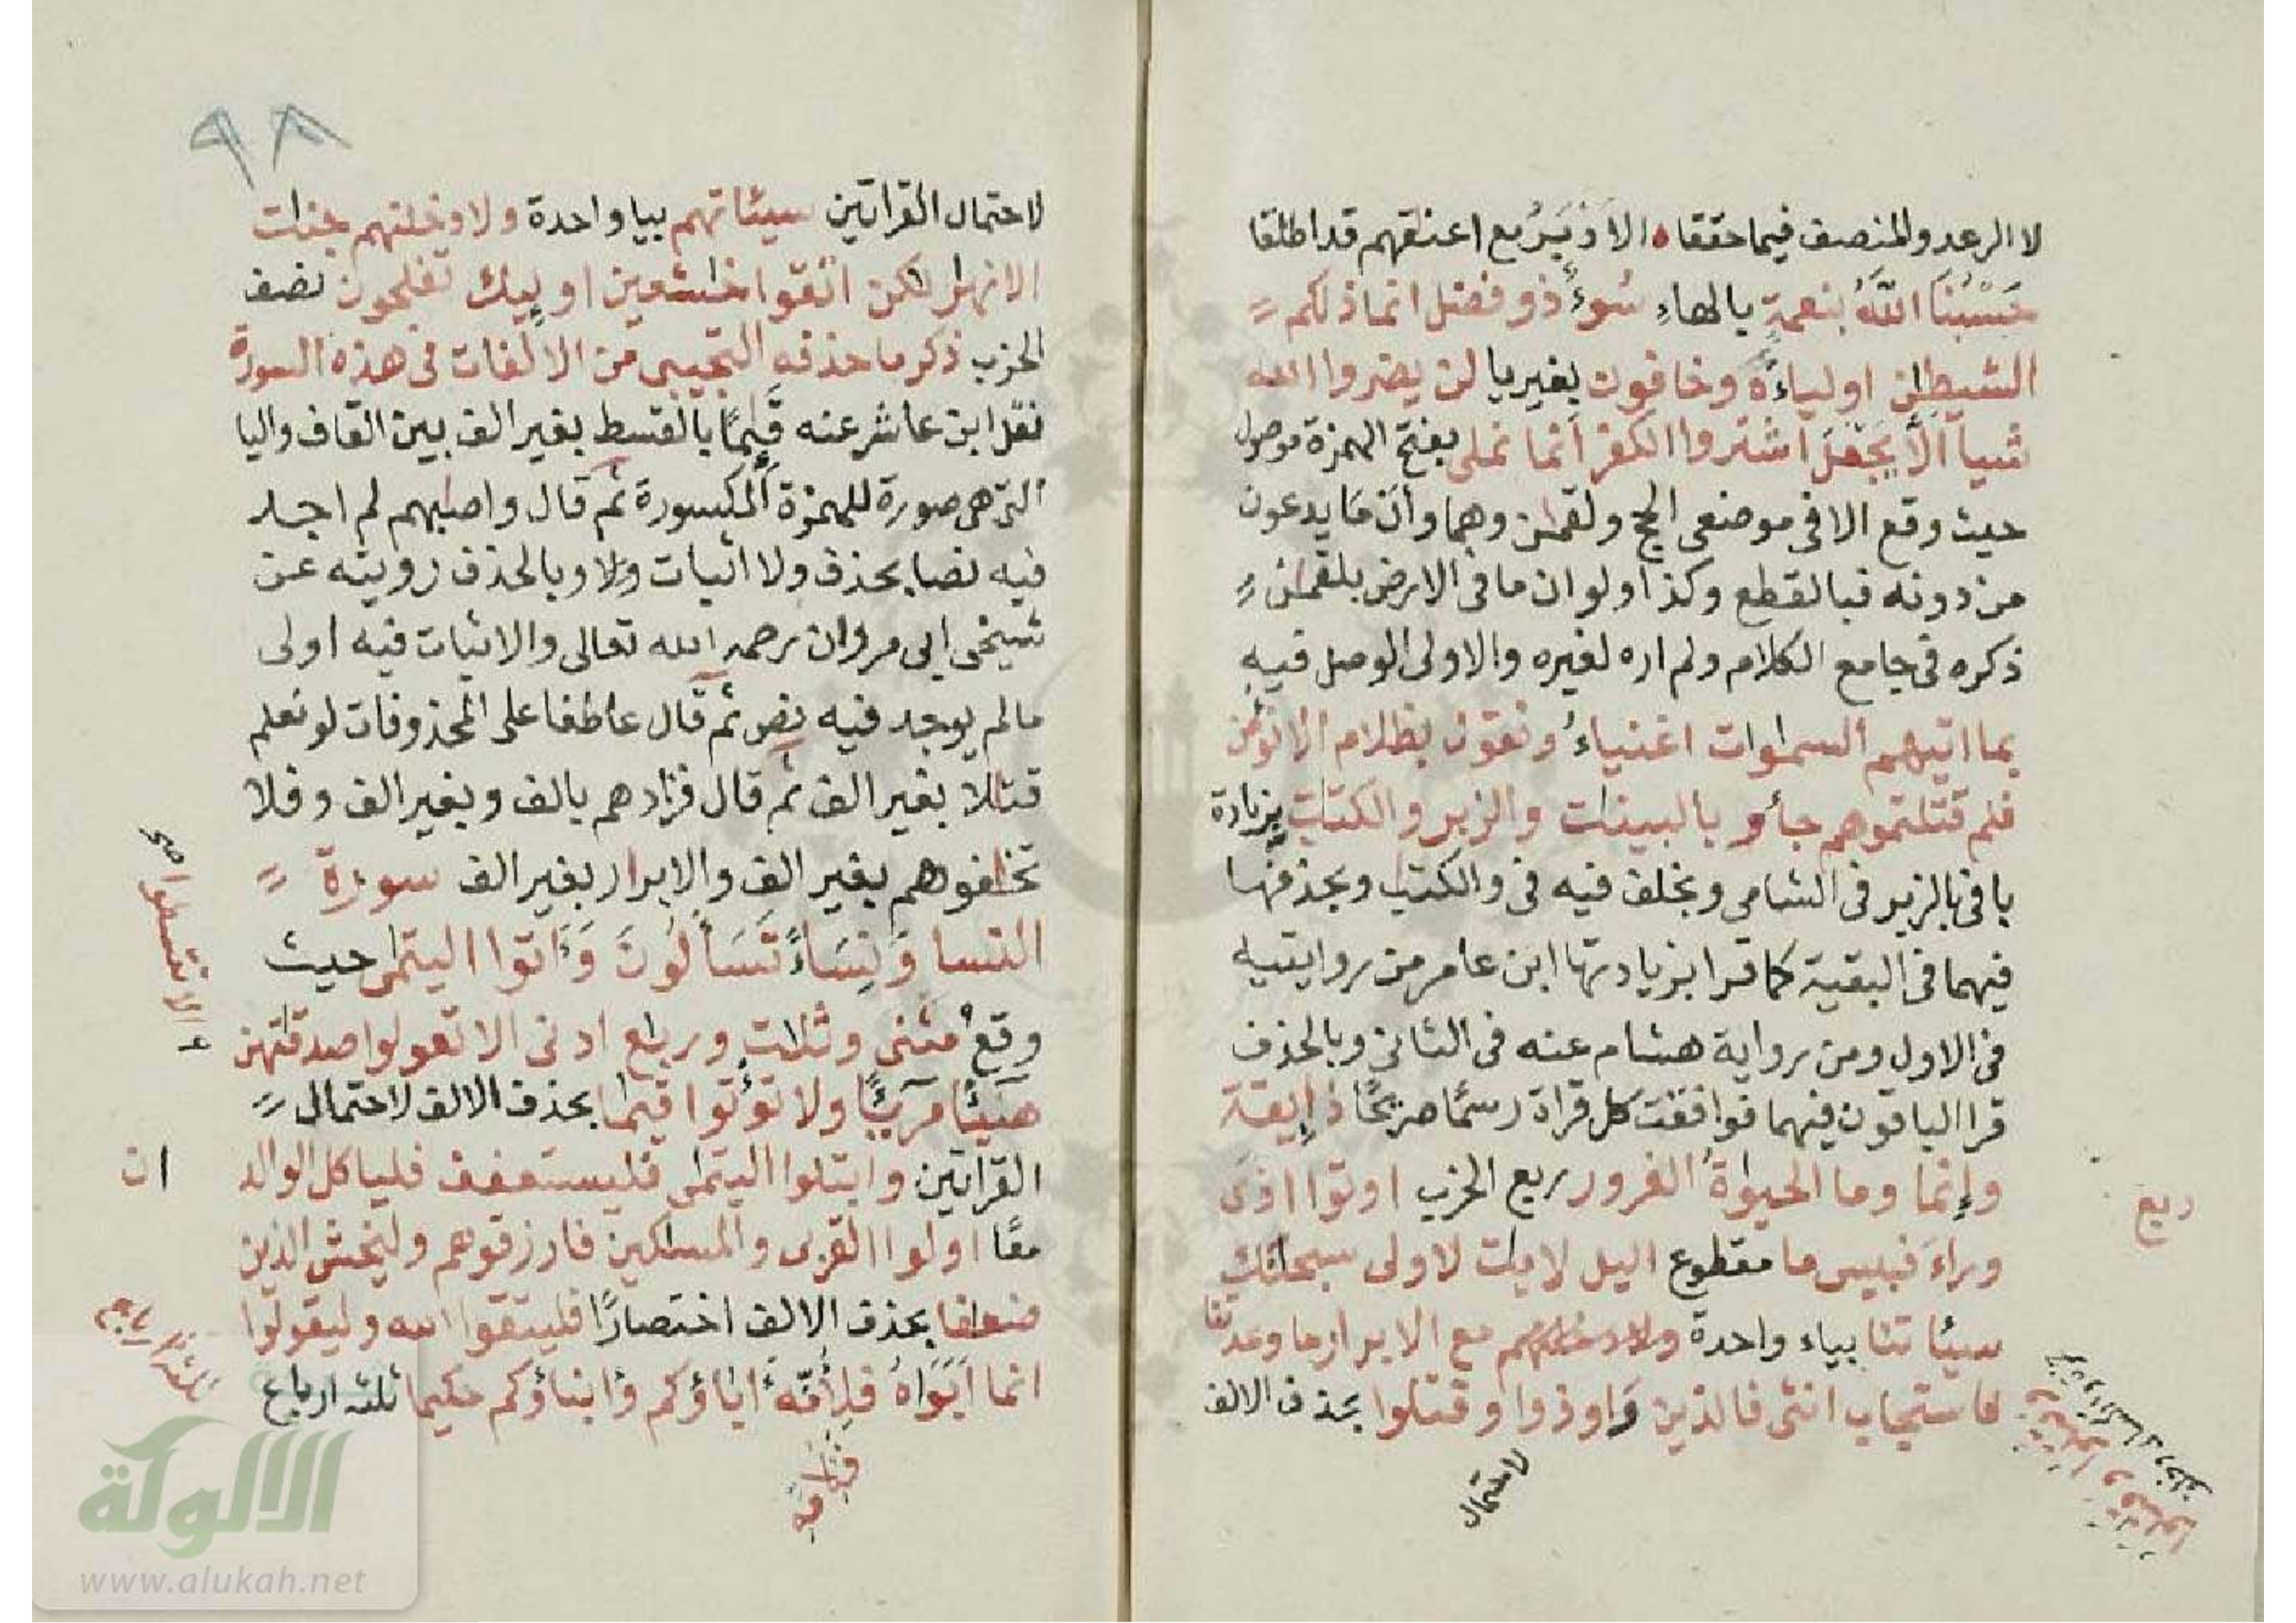 لا الرعد والمنصف فيما حققا ه الاذ يَرُ مع اعنقهم قد اطلقا
حَسْبُنَا اللَّهُ بنعمةٍ بالهاءِ سُوءٌ ذو فضل انما ذلكم
الشيطن اولياءَه وخافون بغير يا لن يضروا الله
شيأ الَّا يَجْعَلَ اشتروا الكفر أنما نملى بفتح الهمزة موصول
حيث وقع الا فى موضعى الحج ولقمن وهما وأن ما يدعون
من دونه فبالقطع وكذا ولو ان ما فى الارض بلقمن
ذكره فى جامع الكلام ولم اره لغيره والاولى الوصل فيه
بما اتيهم السموات اغنياءُ ونقول بظلام الا نؤمن
فلم قتلتموهم جاءُو بالبينت والزبر والكتب بزيادة
با فى بالزبر فى الشامى وبخلف فيه فى والكتب وبحذفها
فيهما فى البقية كما قرا بزيادتها ابن عامر من روايتيه
فى الاول ومن رواية هشام عنه فى الثانى وبالحذف
قرا الباقون فيهما فوافقت كل قراة رسمًا صريحًا ذايقة
وإنما وما الحيوةُ الغرور ربع الحزب اوتوا اذى
وراءَ فبيس ما مقطوع اليل لايت لاولى سبحنك
سيئاتنا بياء واحدة مع الابرار ما وعدتنا
فاستجاب انثى فالذين واوذوا وقتلوا بحذف الالف
لاحتمال
ربع
لاحتمال القراتين سيئاتهم بيا واحدة ولادخلنهم جنت
الانهر لكن اتقوا خشعين اوليك تفلحون نصف
الحزب ذكر ما حذفه التجيبى من الالفات فى هذه السورة
نقل ابن عاشر عنه قَيِمًا بالقسط بغير الف بين القاف واليا
التى هى صورة للهمزة المكسورة ثم قال واصبهم لم اجد
فيه نصا بحذف ولا اثبات ولا وبالحذف رويته عن
شيخى ابى مروان رحمه الله تعالى والاثبات فيه اولى
مالم يوجد فيه نص ثم قال عاطفا على المحذوفات لو نعلم
قتلا بغير الف ثم قال فزادهم بالف وبغير الف وفلا
تخافوهم بغير الف والابرار بغير الف سورة
النسا وَنِسَاءً تَسَاءَلُونَ وَءَاتوا اليتمى حيث
وقع مثنى وثلث وربع ادنى الا تعولوا صدقتهن
هنيئًا مريئًا ولا تؤتوا قيما بحذف الالف لاحتمال
القراتين وابتلوا اليتمى فليستعفف فلياكل الوالدان
معًا اولوا القربى والمسكين فارزقوهم وليخش الذين
ضعفا بحذف الالف اختصارًا فليتقوا الله وليقولوا
انما ابَوَاهُ فلِأُمِّهِ اباؤكم وابناؤكم حكيما ثلثة ارباع
٩٨
الالوكة
www.alukah.net